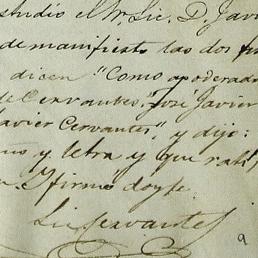 studio el Sr. Lic. D. Javi
de manifiesto las dos fir
dicen: "Como apoderado
de Cervantes," José Javier
Javier Cervantes", y dijo:
puño y letra y que rati
y firmó doy fe.
Lic Cervantes